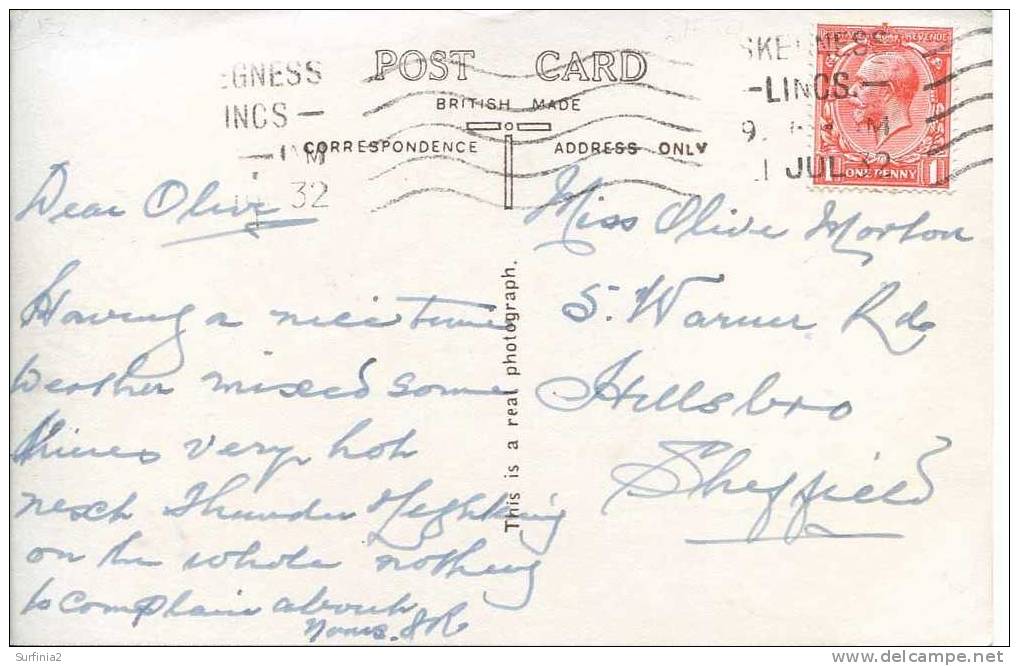 POST CARD
BRITISH MADE
CORRESPONDENCE ADDRESS ONLY
EGNESS
INCS
32
SKEGNESS
LINCS.
JUL 32
REVENUE
ONE PENNY 1
This is a real photograph.
Dear Olive
Having a nice time
weather mixed some
times very hot
next Thunder & Lightning
on the whole nothing
to complain about
Miss Olive Morton
5. Warner Rd
Hillsbro
Sheffield
Surfinia2
delcampe.net